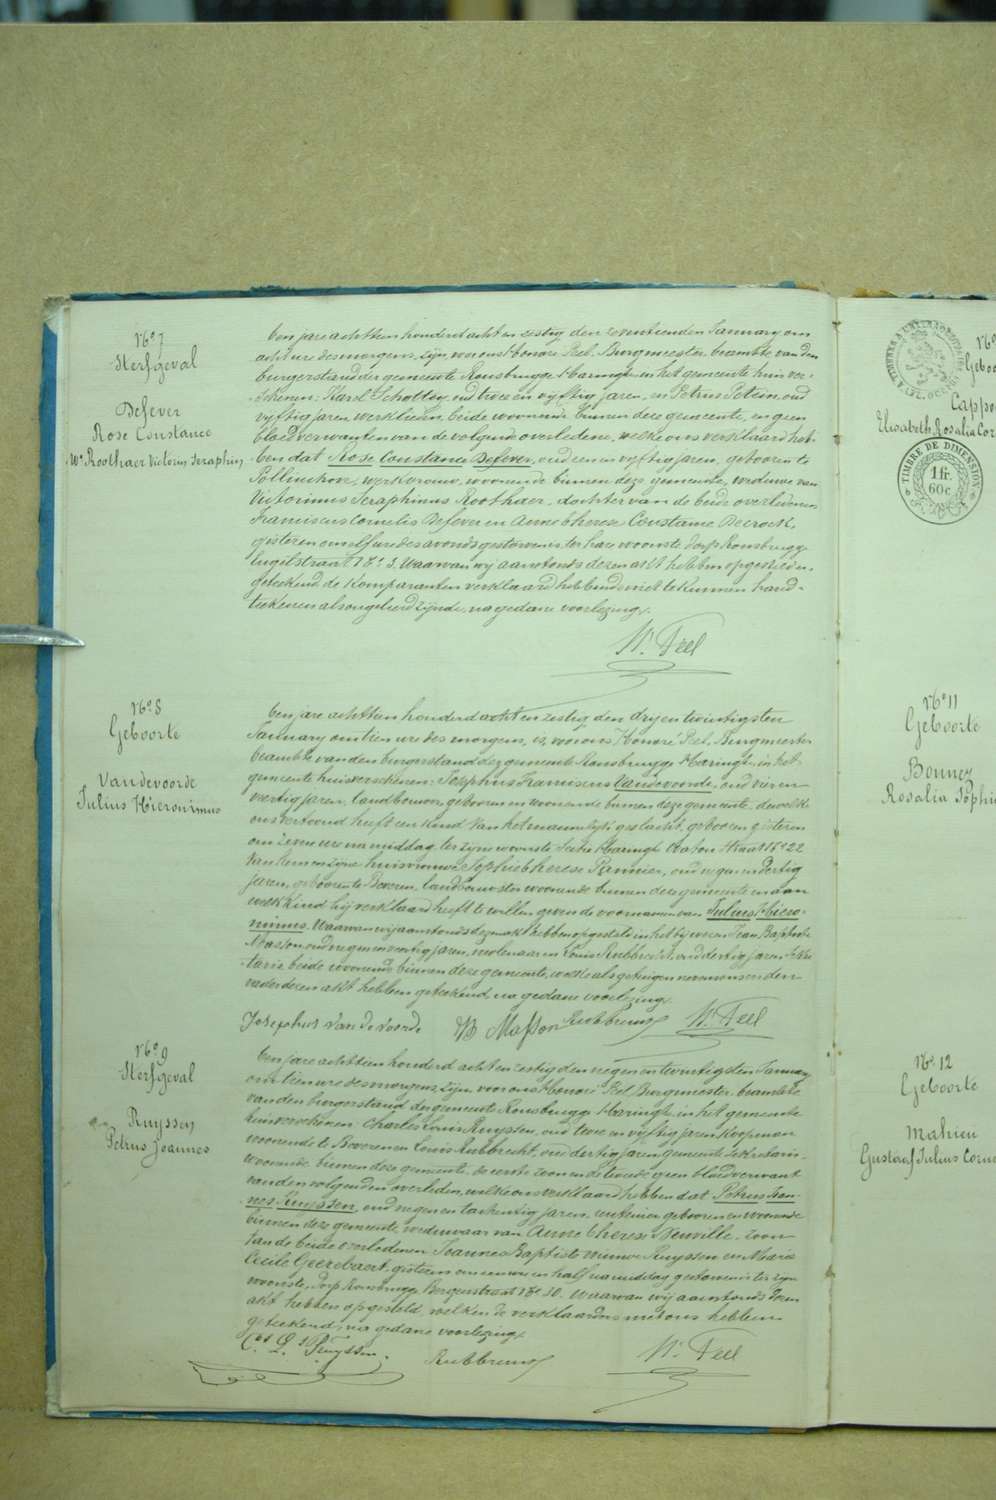 No 7
Sterfgeval
Defever
Rose Constance
We Roothaer Victorin Seraphin
Ten jare achttien honderd acht en zestig den zeventienden January om
acht ure des morgens, zijn voor ons Honoré Feel, Burgmeester beambte van den
burgerstand der gemeente Rousbrugge-Haringhe in het gemeente huis ver-
schenen: Karel Schottey, oud twee en vyftig jaren, en Petrus Petein, oud
vyftig jaren, werklieden, beide woonende binnen deze gemeente, en geen
bloedverwanten van de volgende overledene, welke ons verklaard heb-
ben dat Rose Constance Defever, oud een en vyftig jaren, geboren te
Pollinchove, werkvrouw, woonende binnen deze gemeente, weduwe van
Victorinus Seraphinus Roothaer, dochter van de beide overledenen
Franciscus Cornelis Defever en Anne Therese Constance Decrock,
gisteren om elf ure des avonds gestorven is ter hare woonste dorp Rousbrugge
straat No 3. Waarvan wy aanstonds dezen akt hebben opgesteld en
geteekend, de komparanten verklaard hebbende niet te kunnen hand-
teekenen als ongeleerd zijnde, na gedane voorlezing.
Hé Feel
No 8
Geboorte
Vandevoorde
Julius Hieronimus
Ten jare achttien honderd acht en zestig den dry en twintigsten
January om tien ure des morgens, is, voor ons Honoré Feel, Burgmeester
beambte van den burgerstand der gemeente Rousbrugge-Haringhe in het
gemeente huis verschenen: Josephus Franciscus Vandevoorde, oud vier en
veertig jaren, landbouwer, geboren en woonende binnen deze gemeente, dewelke
ons vertoond heeft een kind van het mannelijk geslacht, geboren gisteren
om zeven ure na middag, ter zijne woonste Haringhe straat No 22
van hem en zijne huisvrouwe Sophie Therese oud negen en dertig
jaren, geboren te Beveren, landbouwster woonende binnen deze gemeente en aan
welk kind hij verklaard heeft te willen geven de voornamen van Julius Hiero-
nimus. Waarvan wij aanstonds dezen akt hebben opgesteld in het bij wezen Jean Baptiste
Masson, oud negen en veertig jaren, molenaar en Louis Rubbrecht, oud dertig jaren, sekre-
taris beide woonende binnen deze gemeente, welke als getuigen nevens ons en den
vader dezen akt hebben geteekend, na gedane voorlezing.
Josephus van de voorde
JB Masson
Hé Feel
No 9
Sterfgeval
Ruyssen
Petrus Joannes
Ten jare achttien honderd acht en zestig den negen en twintigsten January
om tien ure des morgens, zijn voor ons Honoré Feel Burgmeester, beambte
van den burgerstand der gemeente Rousbrugge-Haringhe in het gemeente
huis verschenen: Charles Louis Ruyssen, oud twee en vyftig jaren koopman
woonende te Beveren en Louis Rubbrecht, oud dertig jaren gemeente sekretaris
woonende binnen deze gemeente, de eerste zoon en de tweede geen bloedverwant
van den volgenden overleden, welke ons verklaard hebben dat Petrus Joan-
nes Ruyssen, oud negen en tachentig jaren, rentenier geboren en woonende
binnen deze gemeente, weduwaar van Anne Therese zoon
van de beide overledenen Joannes Baptiste Ruyssen en Marie
Cecile Geerebaert, gisteren om een ure en half namiddag gestorven is ter zijne
woonste, dorp Rousbrugge Bergenstraat No 10. Waarvan wij aanstonds dezen
akt hebben opgesteld, welken de verklaarders met ons hebben
geteekend, na gedane voorlezing.
Ch. Ls Ruyssen.
Hé Feel
Geboo
Cappo
Elisabeth Rosalia Cor
TIMBRE DE DIMENSION
1 fr.
60 c.
No 11
Geboorte
Bonnez
Rosalia Sophie
No 12
Geboorte
Mahieu
Gustaaf Julius Corne